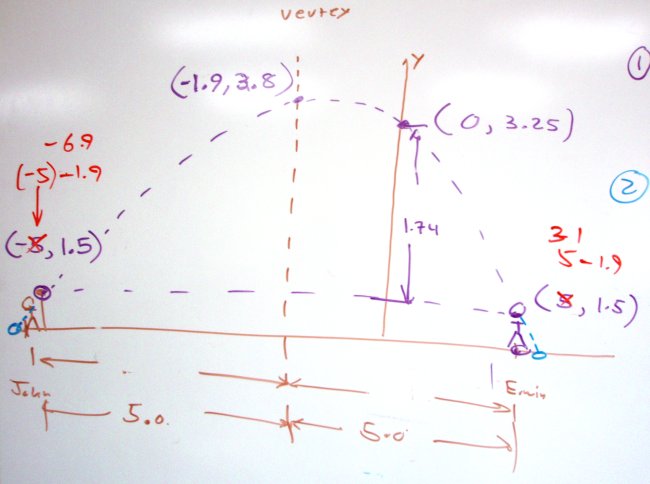 vertex
Y
①
(-1.9, 3.8)
(0, 3.25)
-6.9
(-5)-1.9
②
(-5, 1.5)
1.74
3.1
5-1.9
(5, 1.5)
John
5.0
5.0